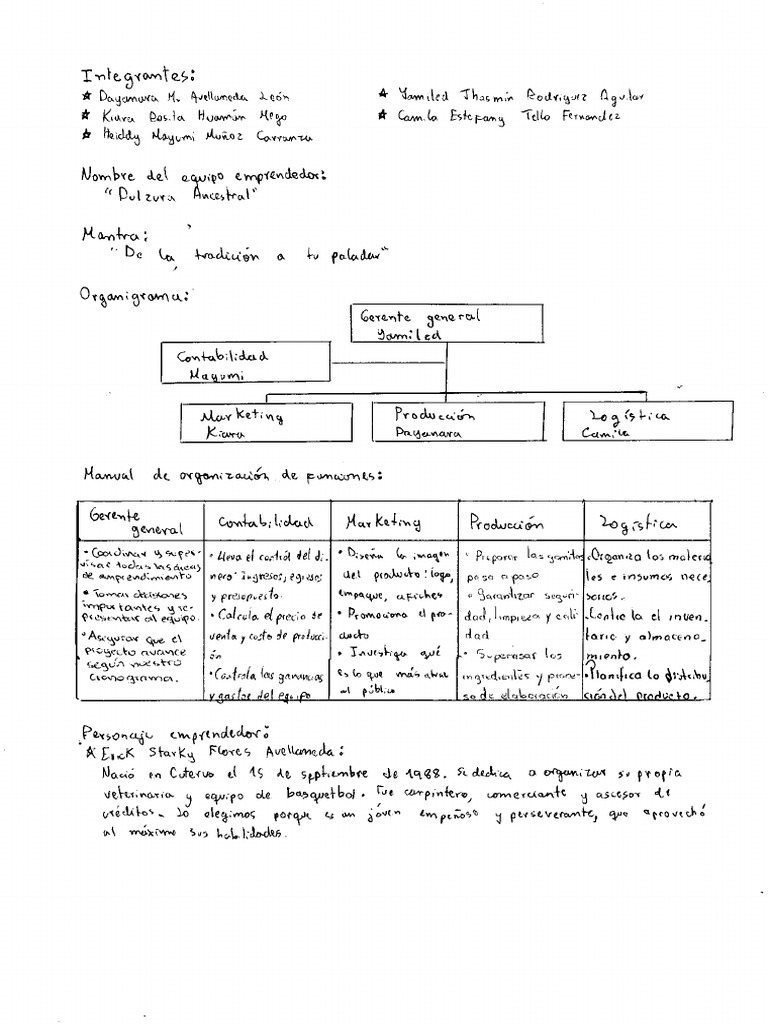 Integrantes:
★ Dayanara M. Avellaneda León
★ Yamiled Jhasmin Rodriguez Aguilar
★ Kiara Rosita Huamán Mego
★ Camila Estefany Tello Fernandez
★ Heiddy Mayumi Muñoz Carranza
Nombre del equipo emprendedor:
"Dulzura Ancestral"
Mantra:
"De la tradición a tu paladar"
Organigrama:
Gerente general
Yamiled
Contabilidad
Mayumi
Marketing
Kiara
Producción
Dayanara
Logística
Camila
Manual de organización de funciones:
Gerente
general
• Coordinar y super-
visar todas las áreas
de emprendimiento
• Tomar decisiones
importantes y re-
presentar al equipo.
• Asegurar que el
proyecto avance
según nuestro
cronograma.
Contabilidad
• Lleva el control del di-
nero: ingresos, egresos
y presupuesto.
• Calcula el precio de
venta y costo de producci-
ón
• Controla las ganancias
y gastos del equipo
Marketing
• Diseña la imagen
del producto: logo,
empaque, afiches
• Promociona el pro-
ducto
• Investiga qué
es lo que más atrae
al público
Producción
• Preparar las gomitas
paso a paso
• Garantizar seguri-
dad, limpieza y cali
dad
• Supervisar los
ingredientes y proce-
so de elaboración
Logística
• Organiza los materia
les e insumos nece
sarios.
• Controla el inven-
tario y almacena-
miento.
• Planifica la distribu
ción del producto.
Personaje emprendedor:
★ Erick Starky Flores Avellaneda:
Nació en Cutervo el 15 de septiembre de 1988. Se dedica a organizar su propia
veterinaria y equipo de basquetbol. Fue carpintero, comerciante y ascesor de
créditos. Lo elegimos porque es un jóven empeñoso y perseverante, que aprovechó
al máximo sus habilidades.